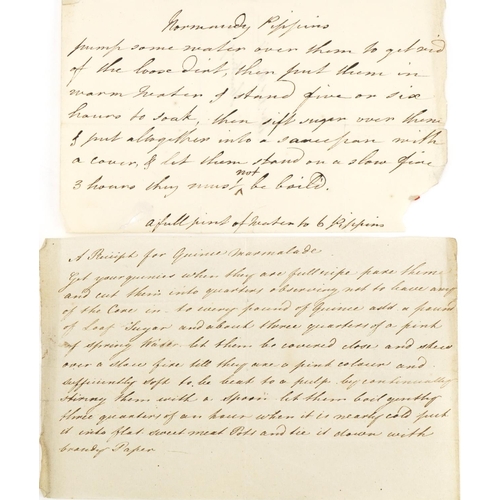 Normandy Pippins
pump some water over them to get rid
of the loose dirt, then put them in
warm water & stand five or six
hours to soak, then sift sugar over them
& put altogether into a saucepan with
a cover, & let them stand on a slow fire
3 hours they must not be boil'd.
a full pint of water to 6 Pippins
A Receipt for Quince Marmalade
Get your quinces when they are full ripe pare them
and cut them into quarters observing not to have any
of the Core in - to every pound of Quince add a pound
of Loaf Sugar and about three quarters of a pint
of spring Water let them be covered close and stew
over a slow fire till they are a pink colour and
sufficiently soft to be beat to a pulp by continually
stirring them with a spoon let them boil gently
three quarters of an hour when it is nearly cold put
it into flat sweet meat Potts and tie it down with
brandy Paper